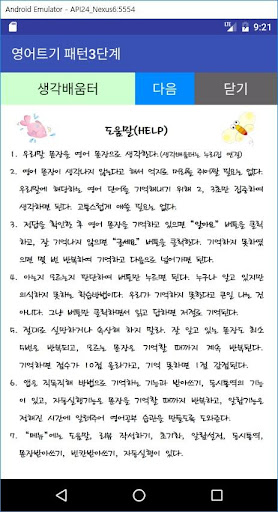 Android Emulator - API24_Nexus6:5554
9:21
영어트기 패턴3단계
생각배움터
다음
닫기
도움말(HELP)
1. 우리말 문장을 영어 문장으로 생각한다.(생각배움터는 누리집 연결)
2. 영어 문장이 생각나지 않는다고 해서 억지로 머리를 쥐어짤 필요는 없다.
우리말에 해당하는 영어 단어를 기억해내기 위해 2, 3분만 집중하여
생각하면 된다. 고통스럽게 애쓸 필요는 없다.
3. 정답을 확인한 후 영어 문장을 기억하고 있으면 "알아요" 버튼을 클릭
하고, 잘 기억나지 않으면 "글쎄요" 버튼을 클릭한다. 기억하지 못하였
으면 몇 번 반복하여 기억하고 다음으로 넘어가면 된다.
4. 아는지 모르는지 판단하여 버튼만 누르면 된다. 누구나 알고 있지만
의식하지 못하는 학습방법이다. 우리가 기억하지 못한다고 큰일 나는 건
아니다. 그냥 버튼만 클릭하면서 읽고 답하면 저절로 기억된다.
5. 절대로 실망하거나 속상해 하지 말라. 잘 알고 있는 문장도 최소
5번은 반복되고, 모르는 문장은 기억할 때까지 계속 반복된다.
기억하면 점수가 10점 올라가고, 기억 못하면 1점 감점된다.
6. 앱은 직독직해 방법으로 기억하는 기능과 받아쓰기, 동시통역의 기능
이 있고, 자동실행기능은 문장을 기억할 때까지 반복하고, 알람기능은
정해진 시간에 알려주어 영어공부 습관을 만들도록 도와준다.
7. "메뉴"에는 도움말, 리뷰 작성하기, 초기화, 알람설정, 동시통역,
문장받아쓰기, 빈칸받아쓰기, 자동실행이 있다.